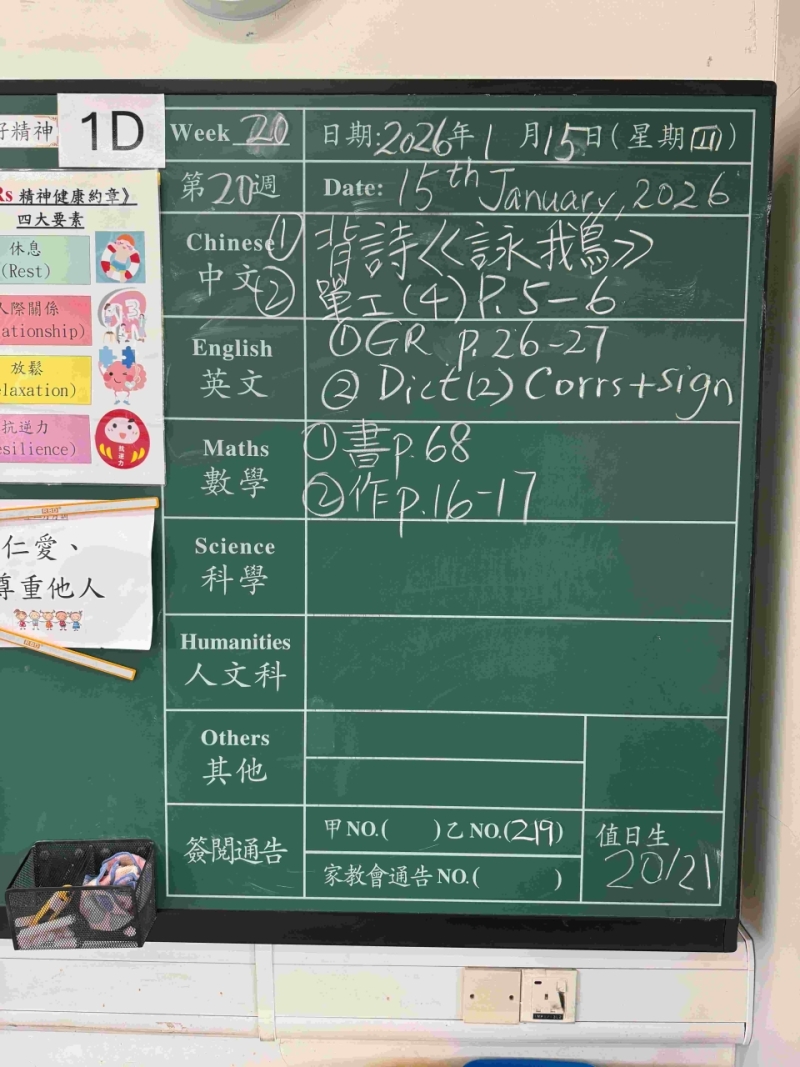 好精神
1D
Week 20 日期:2026年1月15日(星期四)
Rs 精神健康約章》
四大要素
第20週 Date: 15th January, 2026
休息
(Rest)
Chinese ① 背詩《詠鵝》
中文 ② 單工(4) P.5-6
人際關係
ationship)
English ① GR p.26-27
英文 ② Dict(2) Corrs+sign
放鬆
elaxation)
抗逆力
esilience)
抗逆力
Maths ① 書p.68
數學 ② 作p.16-17
仁愛、
尊重他人
Science
科學
Humanities
人文科
Others
其他
簽閱通告
甲NO.( )乙NO.(219)
家教會通告NO.( )
值日生
20/21